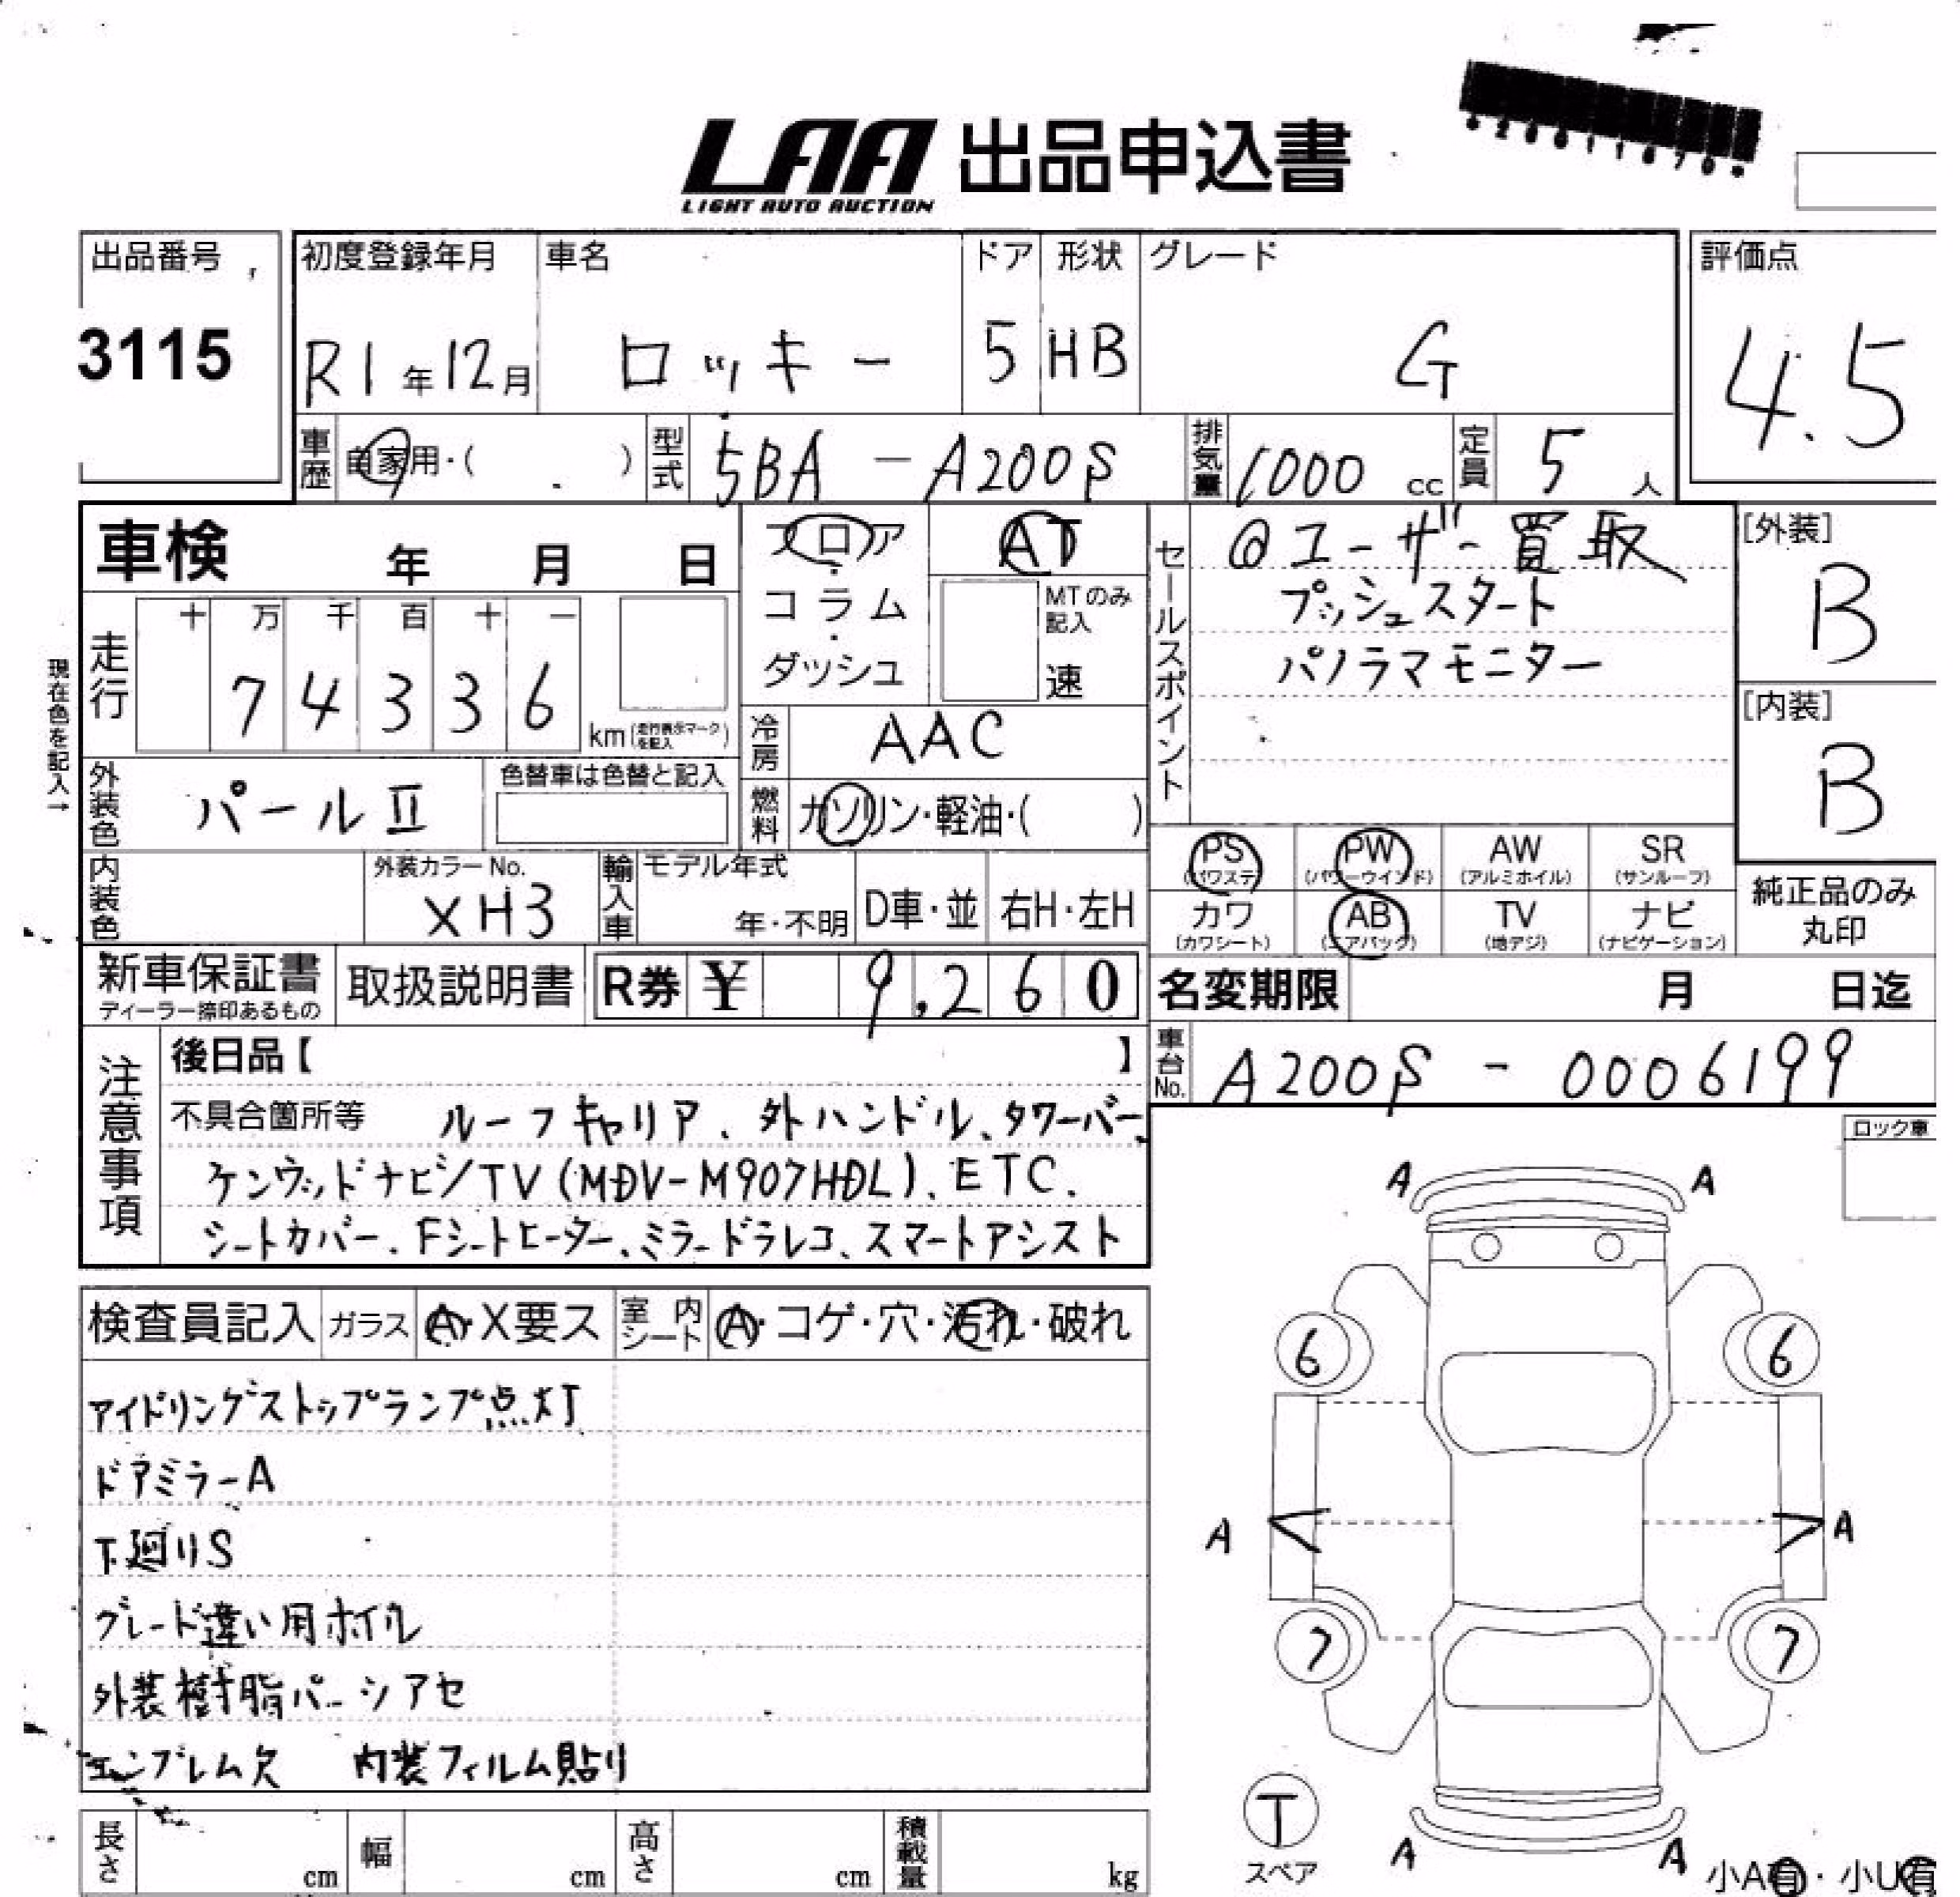 LAA 出品申込書
LIGHT AUTO AUCTION
出品番号
3115
初度登録年月 車名 ドア 形状 グレード
R1年12月 ロッキー 5 HB G
評価点
4.5
車歴 自家用・( ) 型式 5BA-A200S 排気量 1000cc 定員 5人
車検 年 月 日
フロア・コラム・ダッシュ
AT
MTのみ記入
速
セールスポイント
@ユーザー買取
プッシュスタート
パノラマモニター
[外装]
B
[内装]
B
現在色を記入→
走行 十 万 千 百 十 一
7 4 3 3 6 km(走行表示マークを記入)
冷房 AAC
外装色 パールII 色替車は色替と記入
燃料 ガソリン・軽油・( )
内装色 外装カラーNo. XH3
輸入車 モデル年式 年・不明 D車・並 右H・左H
PS (パワステ) PW (パワーウインド) AW (アルミホイル) SR (サンルーフ)
カワ (カワシート) AB (エアバッグ) TV (地デジ) ナビ (ナビゲーション)
純正品のみ丸印
新車保証書 ディーラー捺印あるもの 取扱説明書 R券 ¥ 9,260
名変期限 月 日迄
車台No. A200S-0006199
注意事項
後日品【 】
不具合箇所等 ルーフキャリア、外ハンドル、タワーバー、
ケンウッドナビ/TV(MDV-M907HDL)、ETC、
シートカバー、Fシートヒーター、ミラードラレコ、スマートアシスト
ロック車
検査員記入 ガラス A・X要ス 室内シート A・コゲ・穴・汚れ・破れ
アイドリングストップランプ点灯
ドアミラーA
下廻りS
グレード違い用ホイル
外装樹脂パーツアセ
エンブレム欠 内装フィルム貼り
A A
6 6
A A
7 7
T
スペア
A A
小A有・小U有
長さ cm 幅 cm 高さ cm 積載量 kg